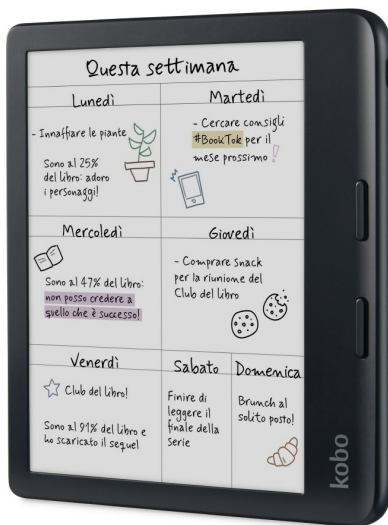 Questa settimana
Lunedì
- Innaffiare le piante
Sono al 25%
del libro: adoro
i personaggi!
Martedì
- Cercare consigli
#BookTok per il
mese prossimo !
Mercoledì
Sono al 47% del libro:
non posso credere a
quello che è successo!
Giovedì
- Comprare snack
per la riunione del
Club del libro
Venerdì
Club del libro!
Sono al 91% del libro e
ho scaricato il sequel
Sabato
Finire di
leggere il
finale della
serie
Domenica
Brunch al
solito posto!
kobo